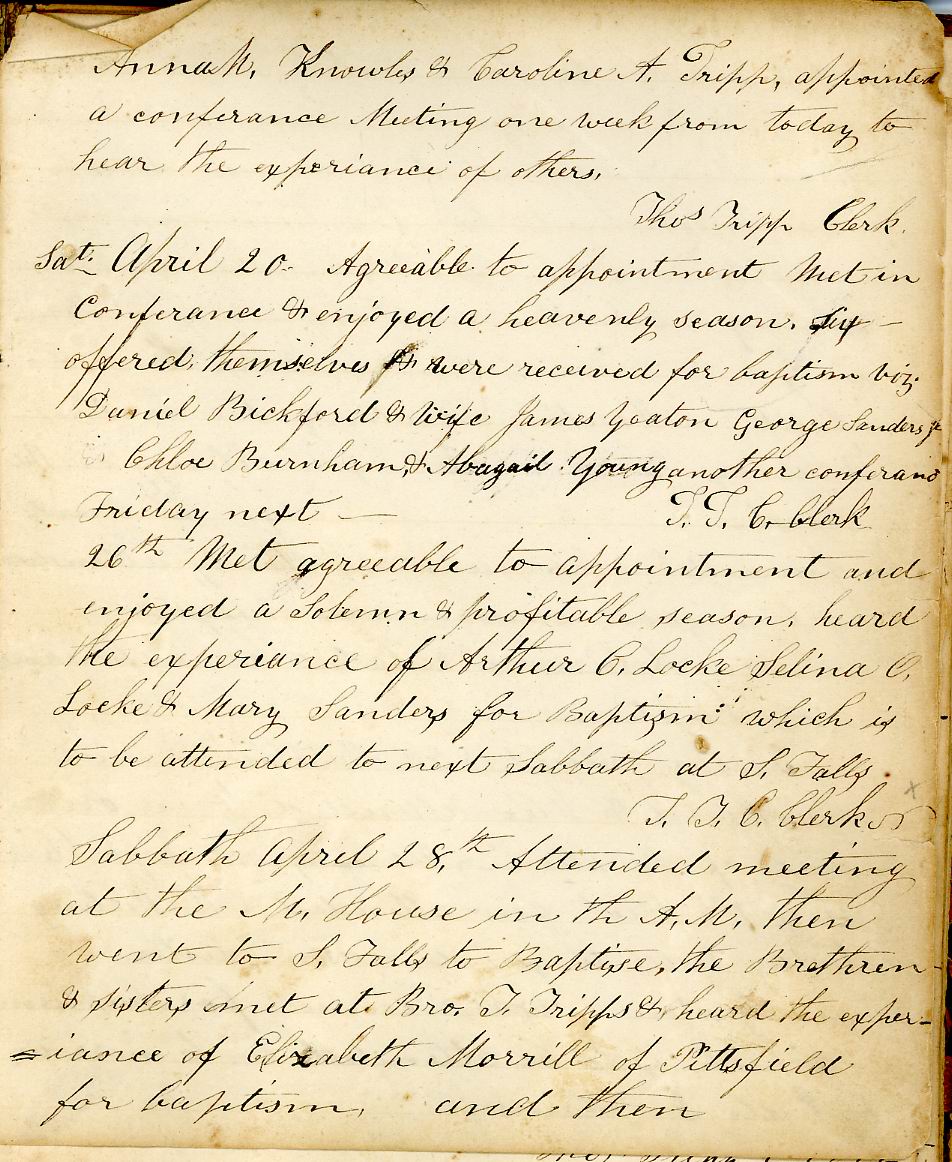 Anna M. Knowles & Caroline A. Tripp, appointed
a conferance Meeting one week from today to
hear the experiance of others.
Thos Tripp Clerk.
Sat. April 20. Agreeable to appointment Met in
Conferance & enjoyed a heavenly season. Six —
offered themselves & were received for baptism viz.
Daniel Bickford & Wife James Yeaton George Sanders jr
Chloe Burnham & Abagail Young another conferanc
Friday next — T. T. C. Clerk
26th Met agreeable to appointment and
enjoyed a Solemn & profitable season. heard
the experiance of Arthur C. Locke Selina O.
Locke & Mary Sanders for Baptism which is
to be attended to next Sabbath at S. Falls
T. T. C. Clerk
Sabbath April 28th Attended meeting
at the M. House in th A.M. then
went to S. Falls to Baptise, the Brethren
& sisters met at Bro. T. Tripps & heard the exper-
=iance of Elizabeth Morrill of Pittsfield
for baptism, and then